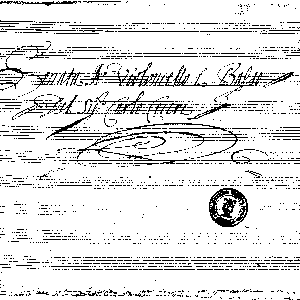 Sonata A Violoncello è Basso
Del Sig.r Carlo